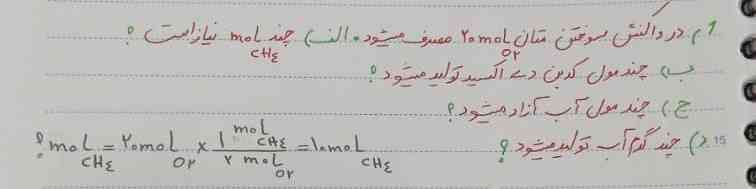 ۱) در واکنش سوختن متان ۲۰mol O۲ مصرف میشود. الف) چند mol CH٤ نیاز است ؟
ب) چند مول کربن دی اکسید تولید میشود ؟
ج) چند مول آب آزاد میشود ؟
د) چند گرم آب تولید میشود ؟
? mol CH٤ = ۲۰mol O۲ × ۱ mol CH٤ / ۲ mol O۲ = ۱۰mol CH٤
15